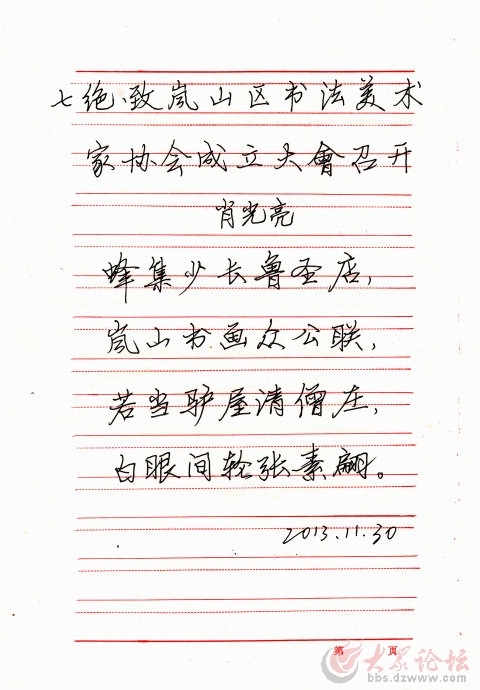 七绝、致岚山区书法美术
家协会成立大會召开
肖光亮
蜂集少长鲁圣店,
岚山书画众公联,
若当驴屋清僧在,
白眼间轮张素翩。
2013.11.30
第 页
大众论坛
bbs.dzwww.com